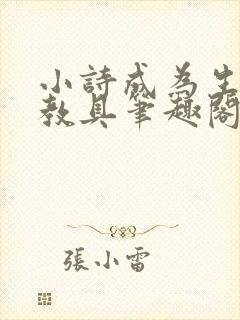 小詩成為生
教具筆趣閣
張小雷